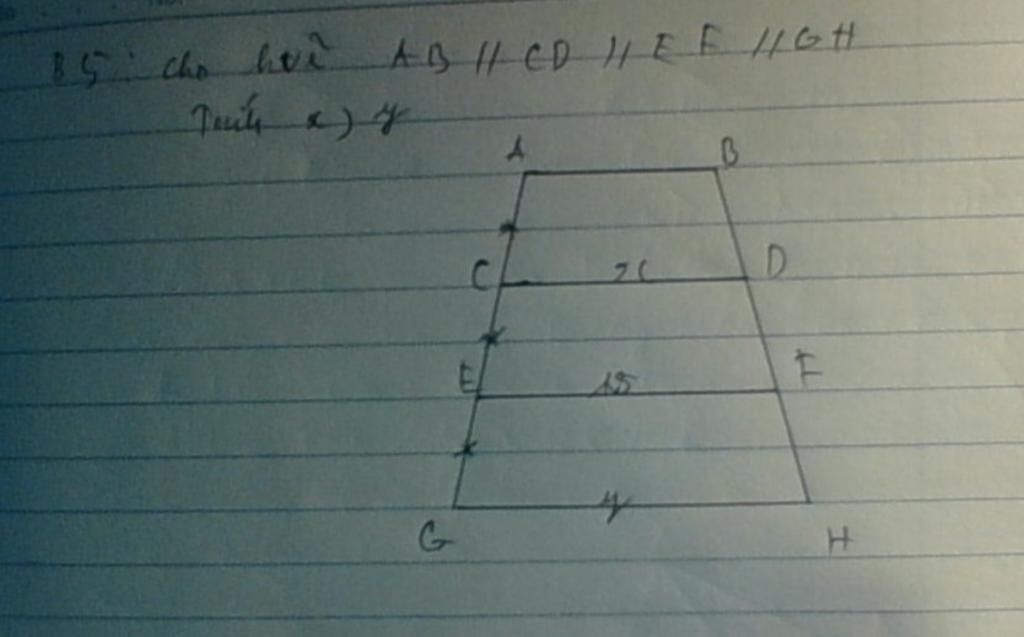 B5: Cho hvẽ AB // CD // EF // GH
Tính x, y
A B
C x D
E 15 F
y
G H